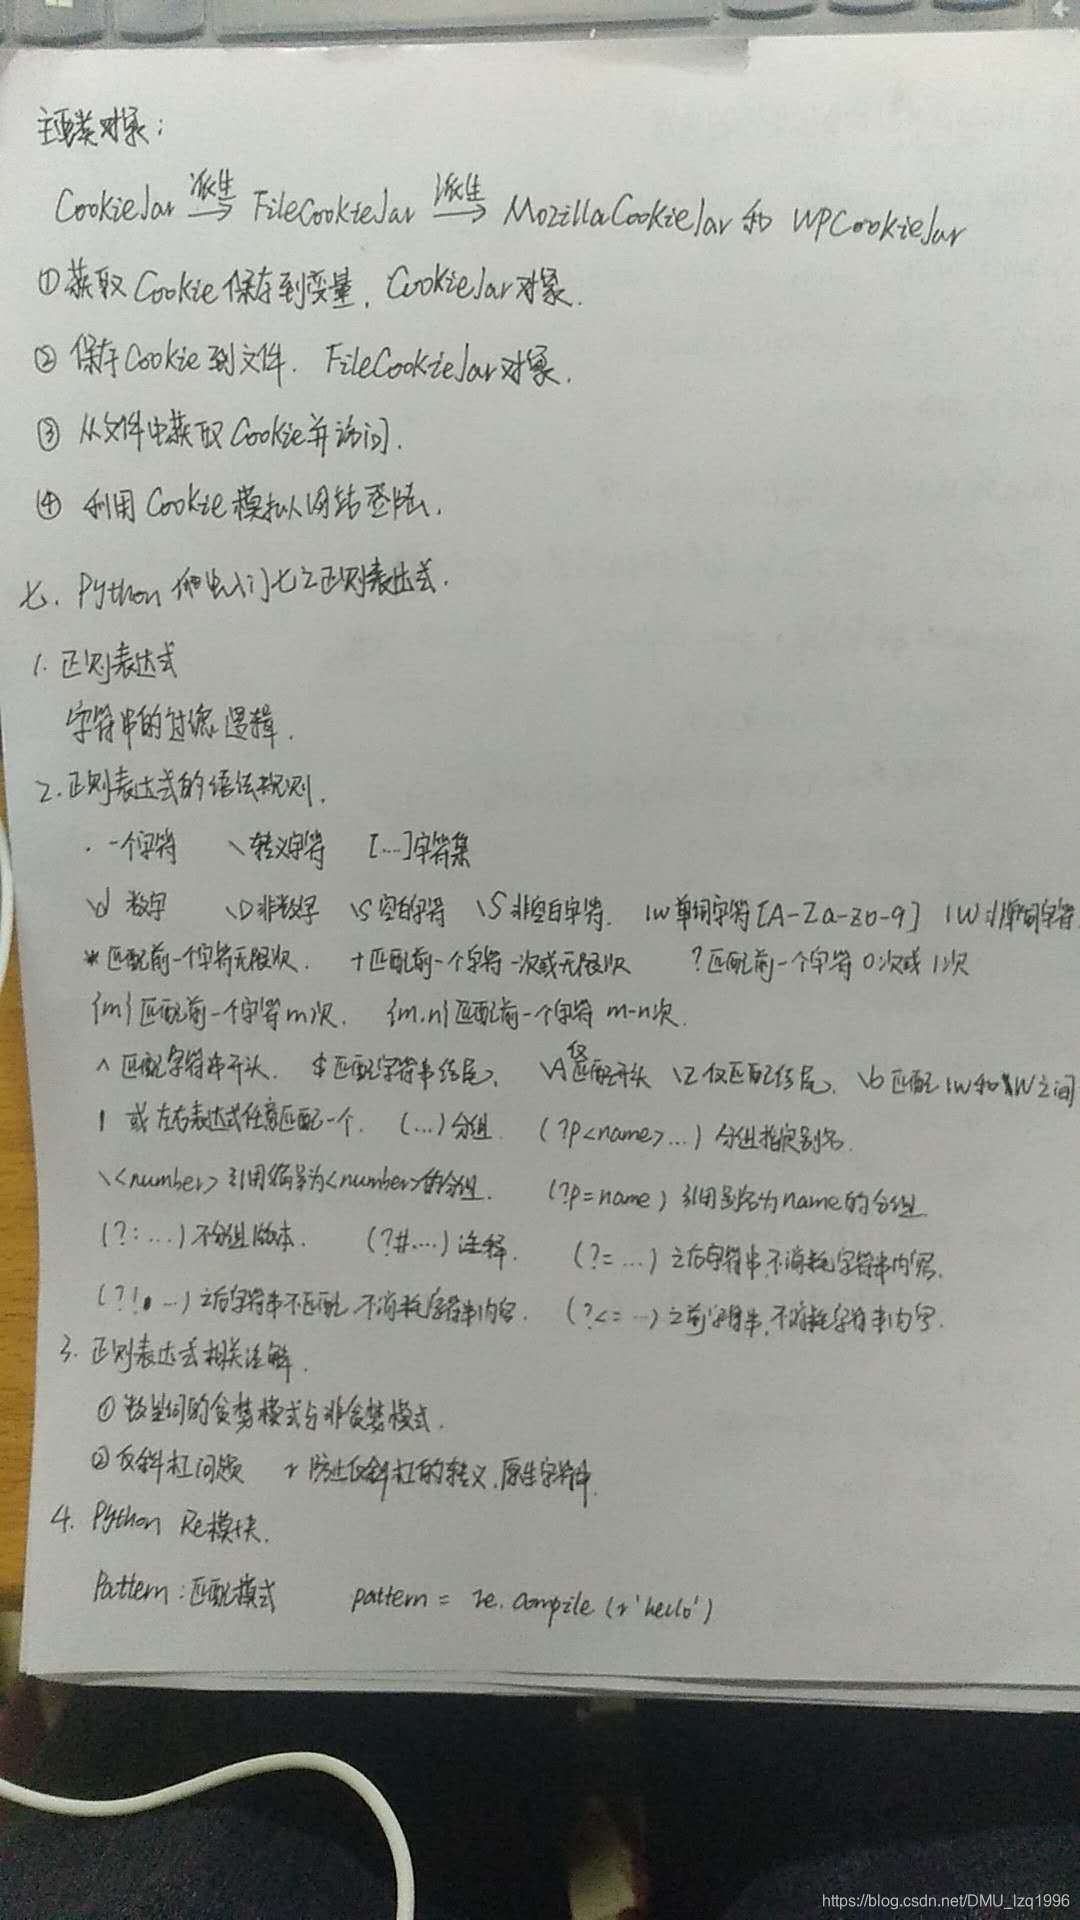 主要类对象:
CookieJar 派生→ FileCookieJar 派生→ MozillaCookieJar 和 WPCookieJar
①获取 Cookie 保存到变量, CookieJar对象.
② 保存 Cookie 到文件. FileCookieJar对象.
③ 从文件中获取 Cookie并访问.
④ 利用 Cookie 模拟网站登陆.
七. Python 爬虫入门七之正则表达式.
1. 正则表达式
字符串的过滤逻辑.
2. 正则表达式的语法规则.
. 一个字符 \ 转义字符 [...]字符集
\d 数字 \D非数字 \s 空白字符 \S 非空白字符. \w 单词字符[A-Za-z0-9] \W非单词字符
* 匹配前一个字符无限次. + 匹配前一个字符一次或无限次 ? 匹配前一个字符 0次或1次
{m}匹配前一个字符m次. {m.n}匹配前一个字符 m-n次.
^ 匹配字符串开头. $匹配字符串结尾. \A 仅匹配开头 \Z 仅匹配结尾. \b 匹配 \w和\W之间
| 或 左右表达式任意匹配一个. (...)分组. (?P<name>...) 分组指定别名.
\<number> 引用编号为<number>的分组. (?P=name) 引用别名为name的分组
(?:...)不分组版本. (?#....)注释. (?=...) 之后字符串,不消耗字符串内容.
(?!...)之后字符串不匹配,不消耗字符串内容. (?<=...)之前字符串,不消耗字符串内容.
3. 正则表达式相关注解.
① 数量词的贪婪模式与非贪婪模式.
② 反斜杠问题 r 防止反斜杠的转义.原生字符串.
4. Python Re模块.
Pattern:匹配模式 pattern = re.compile(r'hello')
https://blog.csdn.net/DMU_lzq1996